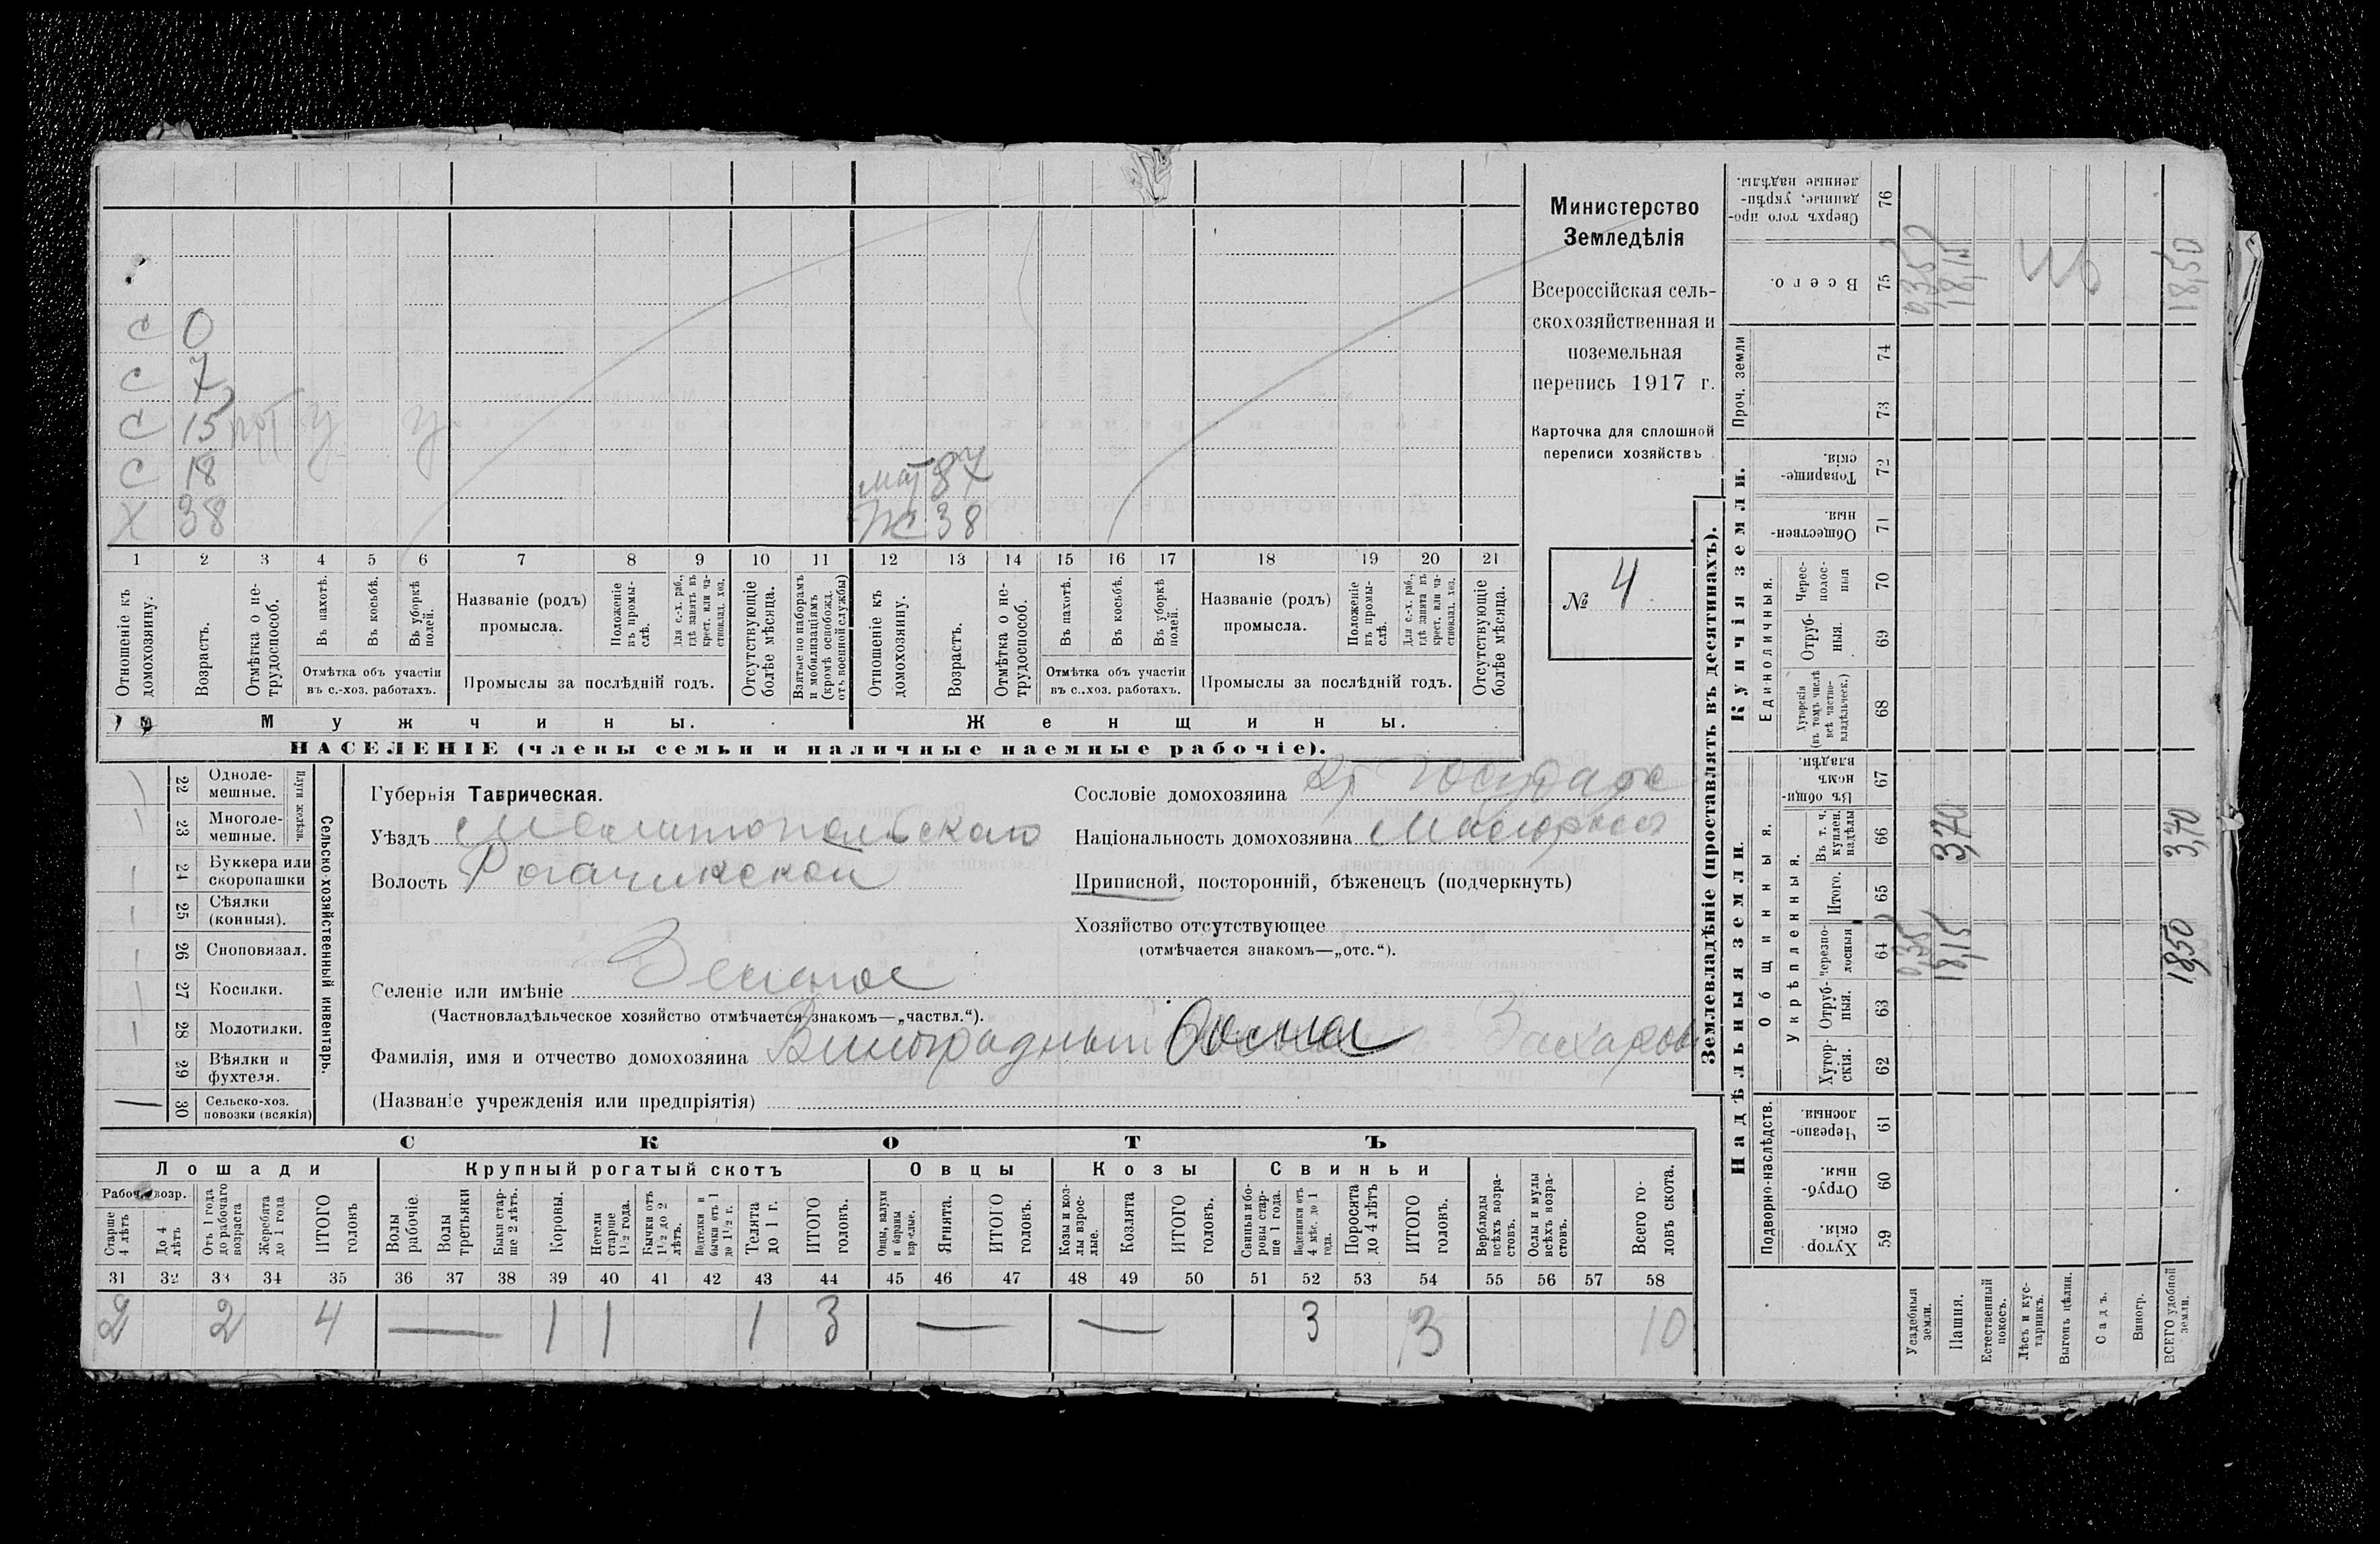 С 0
С 7
С 15 у у
С 18
Х 38
мат 87
Ж 38
1 2 3 4 5 6 7 8 9 10 11 12 13 14 15 16 17 18 19 20 21
Отношеніе къ домохозяину.
Возрастъ.
Отмѣтка о не-трудоспособ.
Въ пахотѣ.
Въ косьбѣ.
Въ уборкѣ полей.
Отмѣтка объ участіи
въ с.-хоз. работахъ.
Названіе (родъ)
промысла.
Положеніе въ промы-слѣ.
Для с.-х. раб., гдѣ занятъ въ крест. или ча-стновлад. хоз.
Промыслы за послѣдній годъ.
Отсутствующіе болѣе мѣсяца.
Взятые по наборамъ и мобилизаціямъ (кромѣ освобожд. отъ военной службы)
Отношеніе къ домохозяину.
Возрастъ.
Отмѣтка о не-трудоспособ.
Въ пахотѣ.
Въ косьбѣ.
Въ уборкѣ полей.
Отмѣтка объ участіи
въ с.-хоз. работахъ.
Названіе (родъ)
промысла.
Положеніе въ промы-слѣ.
Для с.-х. раб., гдѣ занята въ крест. или ча-стновлад. хоз.
Промыслы за послѣдній годъ.
Отсутствующіе болѣе мѣсяца.
Мужчины.
Женщины.
НАСЕЛЕНІЕ (члены семьи и наличные наемные рабочіе).
Министерство
Земледѣлія
Всероссійская сель-
скохозяйственная и
поземельная
перепись 1917 г.
Карточка для сплошной
переписи хозяйствъ
№ 4
22 Одноле-мешные.
23 Многоле-мешные.
Плуги желѣзн.
24 Буккера или скоропашки
25 Сѣялки (конныя).
26 Сноповязал.
27 Косилки.
28 Молотилки.
29 Вѣялки и фухтеля.
30 Сельско-хоз. повозки (всякія)
Сельско-хозяйственный инвентарь.
Губернія Таврическая.
Уѣздъ Мелитопольскаго
Волость Рогачикской
Селеніе или имѣніе Зеленое
(Частновладѣльческое хозяйство отмѣчается знакомъ—„частвл.“).
Фамилія, имя и отчество домохозяина Виноградный Захаров
(Названіе учрежденія или предпріятія)
Сословіе домохозяина
Національность домохозяина Малороссъ
Приписной, посторонній, бѣженецъ (подчеркнуть)
Хозяйство отсутствующее
(отмѣчается знакомъ—„отс.“).
СКОТЪ
Лошади
Крупный рогатый скотъ
Овцы
Козы
Свиньи
Рабоч. возр.
Старше 4 лѣтъ
До 4 лѣтъ
Отъ 1 года до рабочаго возраста
Жеребята до 1 года
ИТОГО головъ
Волы рабочіе
Волы третьяки
Быки стар-ше 2 лѣтъ.
Коровы.
Нетели старше 1½ года.
Бычки отъ 1½ до 2 лѣтъ.
Подтелки и бычки отъ 1 до 1½ г.
Телята до 1 г.
ИТОГО головъ.
Овцы, валухи и бараны взрослые.
Ягнята.
ИТОГО головъ.
Козы и коз-лы взрос-лые.
Козлята
ИТОГО головъ.
Свиньи и бо-ровы стар-ше 1 года.
Подсвинки отъ 4 мѣс. до 1 года.
Поросята до 4 лѣтъ
ИТОГО головъ.
Верблюды всѣхъ возра-стовъ.
Ослы и мулы всѣхъ возра-стовъ.
Всего го-ловъ скота.
31 32 33 34 35 36 37 38 39 40 41 42 43 44 45 46 47 48 49 50 51 52 53 54 55 56 57 58
2 2 4 — 1 1 1 3 — — 3 3 10
Землевладѣніе (проставлять въ десятинахъ).
Надѣльныя земли.
Купчія земли.
Проч. земли
Подворно-наслѣдств.
Общинныя.
Укрѣпленныя.
Единоличныя.
Хутор-скія. 59
Отруб-ныя. 60
Черезпо-лосныя. 61
Хутор-скія. 62
Отруб-ныя. 63
Черезпо-лосныя 64
Итого. 65
Въ т. ч. куплен. надѣлы 66
Въ общи-номъ владѣн. 67
Хуторскія (въ томъ числѣ всѣ частно-владѣльческ.) 68
Отруб-ныя. 69
Черес-полос-ныя 70
Обществен-ныя. 71
Товарище-скія. 72
73
74
Всего. 75
Сверхъ того про-данные, укрѣп-ленные надѣлы. 76
Усадебныя земли. 0,35 0,35
Пашня. 18,15 3,70 18,15
Естественный покосъ.
Лѣсъ и кус-тарникъ.
Выгонъ цѣлин.
Садъ.
Виногр.
ВСЕГО удобной земли. 18,50 3,70 18,50